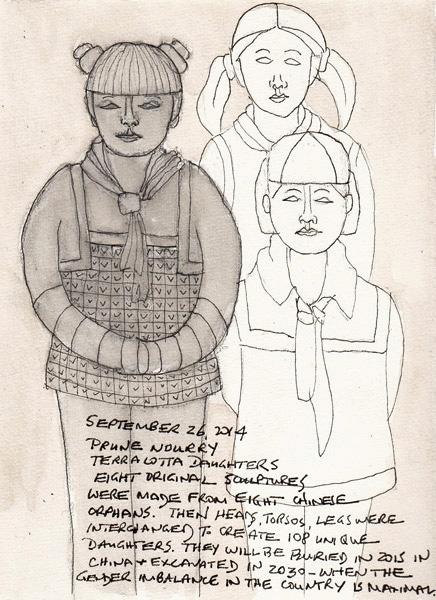 SEPTEMBER 26, 2014
PRUNE NOURRY
TERRACOTTA DAUGHTERS
EIGHT ORIGINAL SCULPTURES
WERE MADE FROM EIGHT CHINESE
ORPHANS. THEN HEADS, TORSOS, LEGS WERE
INTERCHANGED TO CREATE 108 UNIQUE
DAUGHTERS. THEY WILL BE BURIED IN 2015 IN
CHINA + EXCAVATED IN 2030 - WHEN THE
GENDER IMBALANCE IN THE COUNTRY IS MAXIMAL.